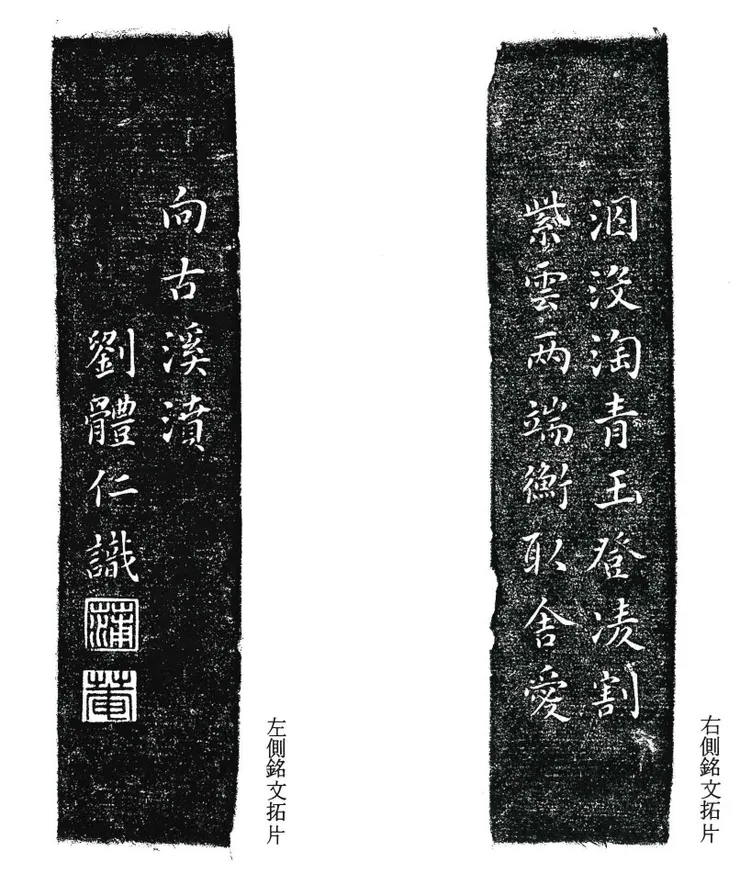 右側銘文拓片
泅没淘青玉登凌割
紫雲两端衡取舍愛
左側銘文拓片
向古溪濆
劉體仁識
蒲
菴